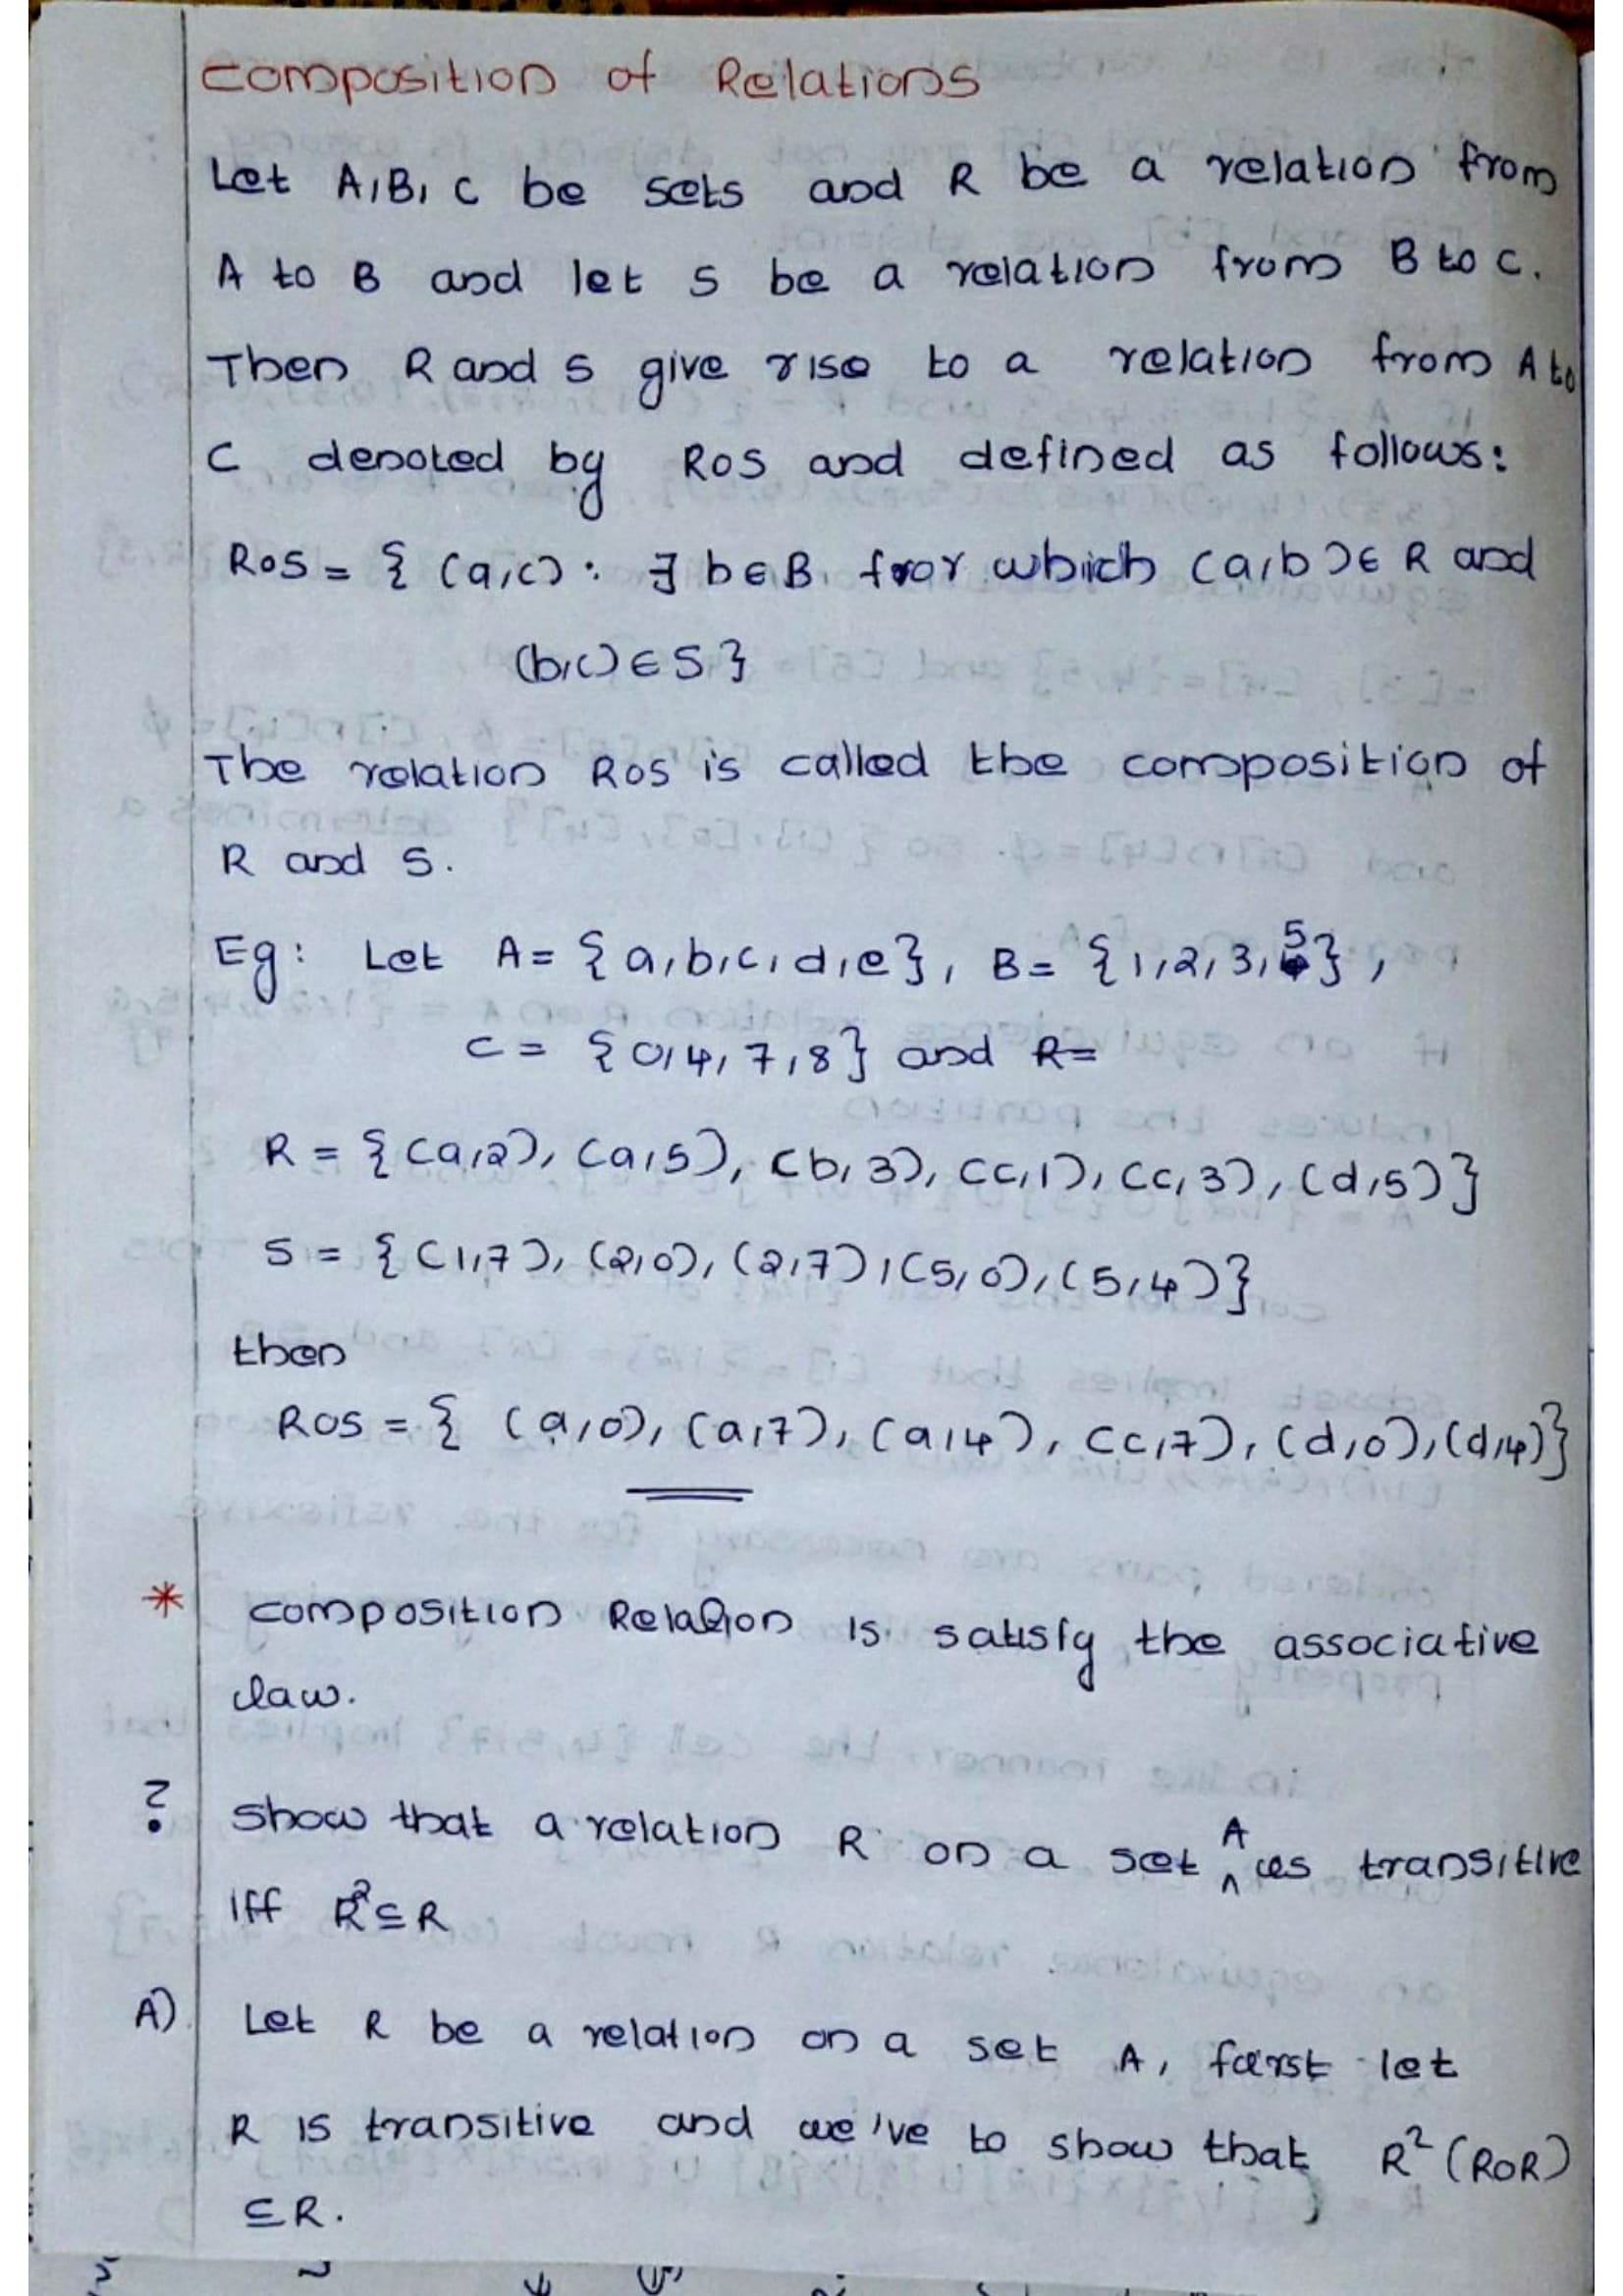 Composition of Relations
Let A, B, C be sets and R be a relation from
A to B and let S be a relation from B to C.
Then R and S give rise to a relation from A to
C denoted by ROS and defined as follows:
ROS = { (a,c) : ∃ b ∈ B for which (a,b) ∈ R and
(b,c) ∈ S }
The relation ROS is called the composition of
R and S.
Eg: Let A = {a,b,c,d,e}, B = {1,2,3,5},
C = {0,4,7,8} and R=
R = {(a,2), (a,5), (b,3), (c,1), (c,3), (d,5)}
S = {(1,7), (2,0), (2,7), (5,0), (5,4)}
then
ROS = { (a,0), (a,7), (a,4), (c,7), (d,0), (d,4)}
* Composition Relation is satisfy the associative
law.
? Show that a relation R on a set A is transitive
iff R² ⊆ R
A) Let R be a relation on a set A, first let
R is transitive and we've to show that R² (ROR)
⊆ R.